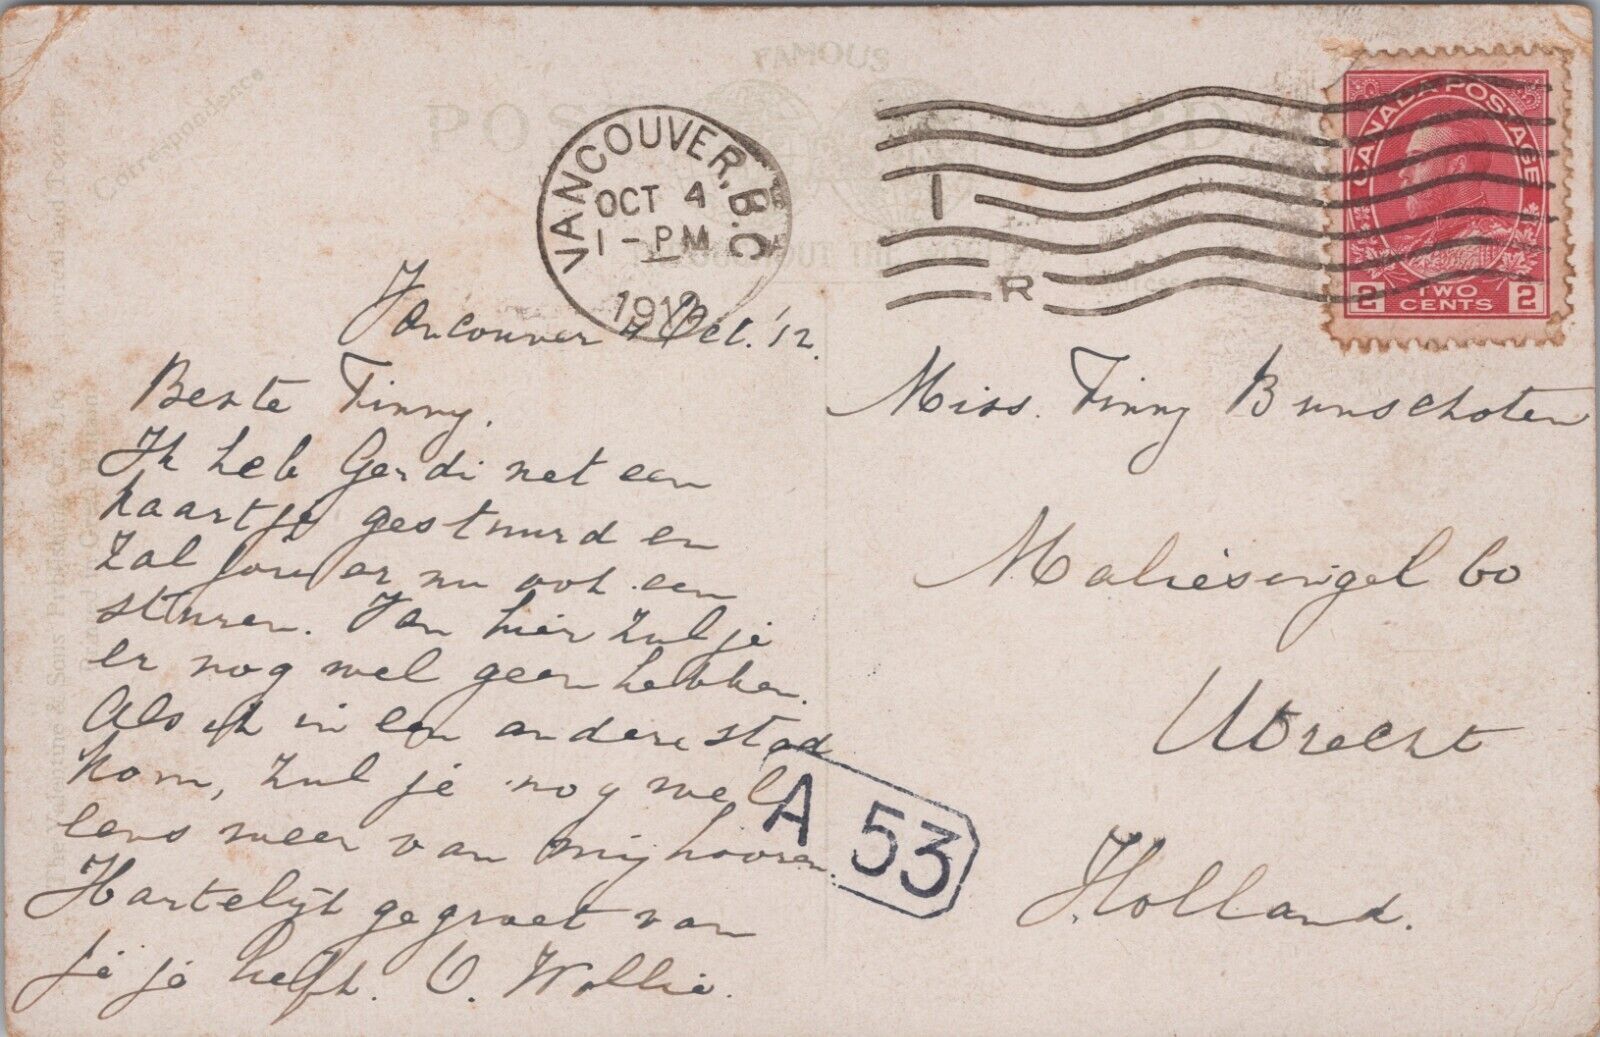 Correspondence
FAMOUS
POST CARD
THROUGHOUT THE
VANCOUVER, B.C
OCT 4
1-PM
1912
I
R
CANADA POSTAGE
2 TWO CENTS 2
Vancouver 4 Oct. '12.
Beste Finny,
Ik heb Gerdi net een
kaartje gestuurd en
zal jou er nu ook een
sturen. Van hier zul je
er nog wel geen hebben.
Als ik in een andere stad
kom, zul je nog wel
eens weer van mij hooren.
Hartelijk gegroet van
je je heeft. O. Wollie.
Miss. Finny Bunschoten
Maliesingel 60
Utrecht
Holland.
A 53
The Valentine & Sons Publishing Co., Ltd. Montreal and Toronto
Printed in Great Britain